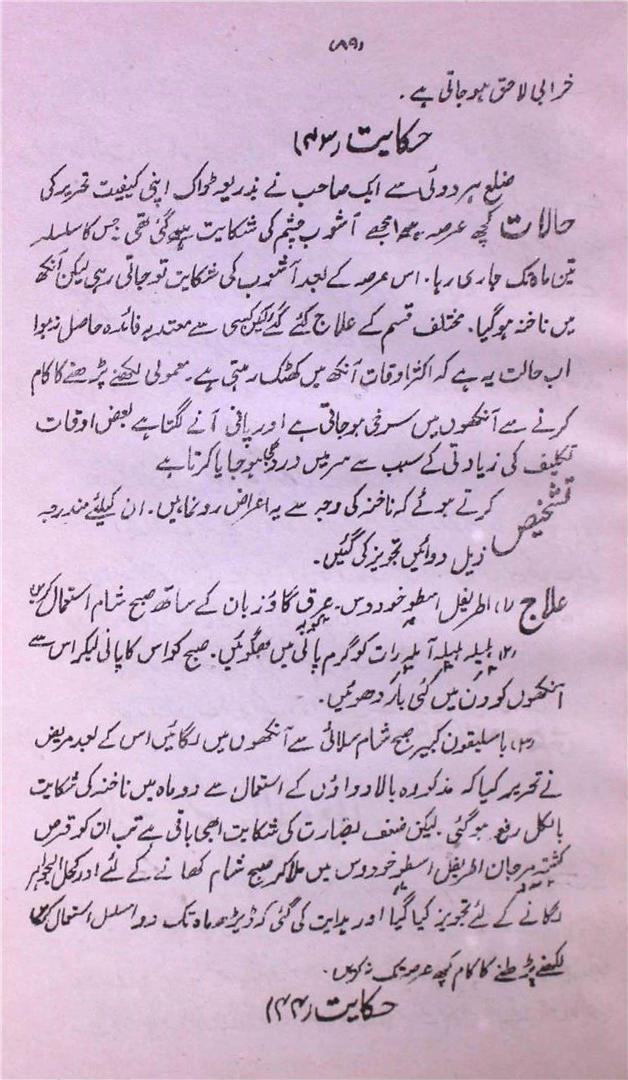 (۸۹)
خرابی لاحق ہوجاتی ہے۔
حکایت (۴۳)
ضلع ہردوئی سے ایک صاحب نے بذریعہ ڈاک اپنی کیفیت تحریر کی
حالات کچھ عرصہ ہوا مجھے آشوب چشم کی شکایت ہوگئی تھی جس کا سلسلہ
تین ماہ تک جاری رہا۔ اس عرصہ کے بعد آشوب کی شکایت تو جاتی رہی لیکن آنکھ
میں ناخنہ ہوگیا۔ مختلف قسم کے علاج کئے گئے لیکن کسی سے معتد بہ فائدہ حاصل نہ ہوا
اب حالت یہ ہے کہ اکثر اوقات آنکھ میں کھٹک رہتی ہے۔ معمولی لکھنے پڑھنے کا کام
کرنے سے آنکھوں میں سرخی ہوجاتی ہے اور پانی آنے لگتا ہے بعض اوقات
تکلیف کی زیادتی کے سبب سے سر میں درد بھی ہوجایا کرتا ہے
تشخیص کرتے ہوئے کہ ناخنہ کی وجہ سے یہ اعراض رونما ہیں۔ ان کیلئے مندرجہ
ذیل دوائیں تجویز کی گئیں۔
علاج (۱) اطریفل اسطوخودوس۔ عرق گاؤزبان کے ساتھ صبح شام استعمال کریں
(۲) ہلیلہ بلیلہ آملہ رات کو گرم پانی میں بھگوئیں۔ صبح کو اس کا پانی لیکر اس سے
آنکھوں کو دن میں کئی بار دھوئیں۔
(۳) باسلیقون کبیر صبح شام سلائی سے آنکھوں میں لگائیں اس کے بعد مریض
نے تحریر کیا کہ مذکورہ بالا دواؤں کے استعمال سے دو ماہ میں ناخنہ کی شکایت
بالکل رفع ہوگئی۔ لیکن ضعف بصارت کی شکایت ابھی باقی ہے تب ان کو قرص
کشتہ مرجان اطریفل اسطوخودوس میں ملاکر صبح شام کھانے کے لئے اور کحل الجواہر
لگانے کے لئے تجویز کیا گیا اور ہدایت کی گئی کہ ڈیڑھ ماہ تک دوا مسلسل استعمال کریں
لکھنے پڑھنے کا کام کچھ عرصہ تک نہ کریں۔
حکایت (۴۴)